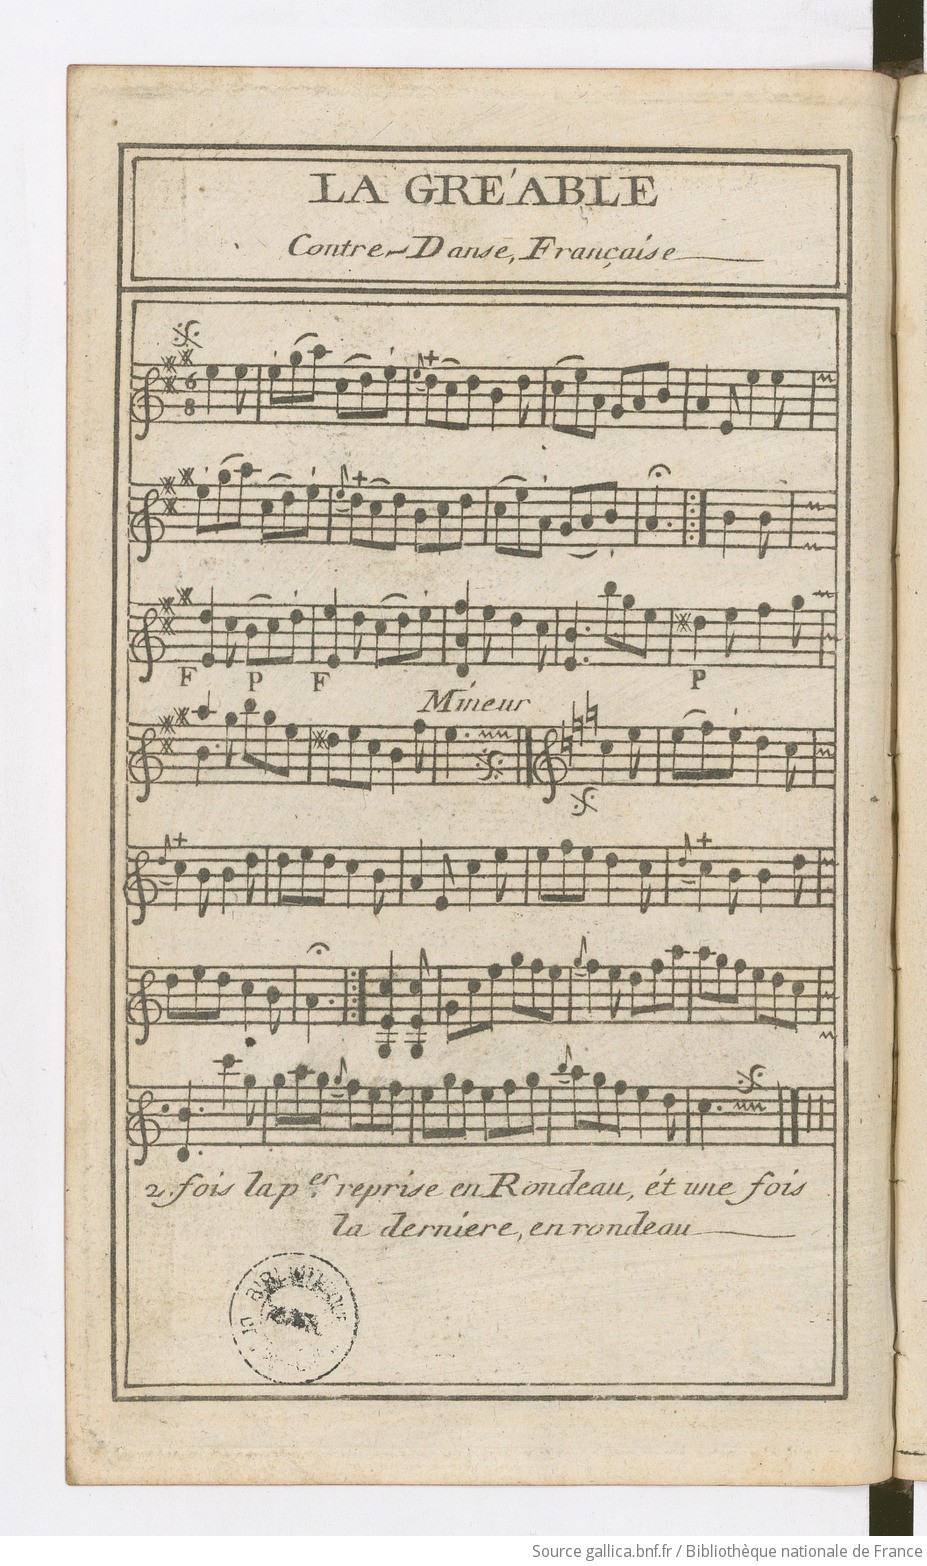 LA GRE'ABLE
Contre-Danse, Française
6
8
F P F P
Mineur
2. fois la p.er reprise en Rondeau, ét une fois
la derniere, en rondeau
BIBLIOTHEQUE
Source gallica.bnf.fr / Bibliothèque nationale de France